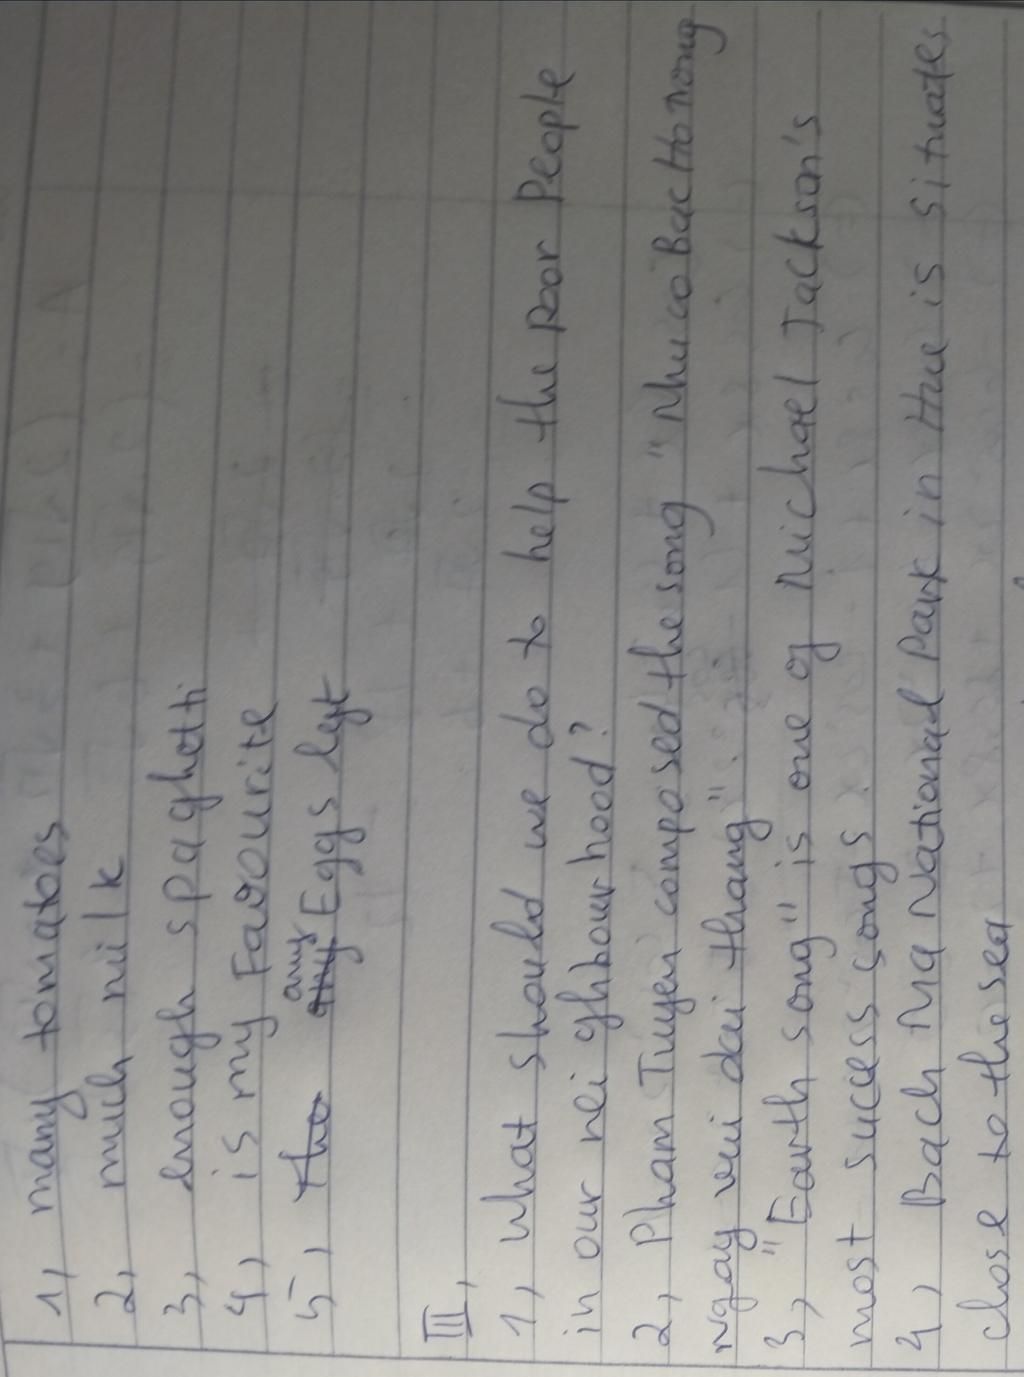 1, many tomatoes
2, much milk
3, enough spaghetti
4, is my Favourite
5, any Eggs left
III,
1, What should we do to help the poor People
in our neighbourhood?
2, Pham Tuyen composed the song "Nhu co Bac Ho trong
ngay vui dai thang".
3, "Earth song" is one of Michael Jackson's
most success songs.
4, Bach Ma National Park in Hue is situates
close to the sea